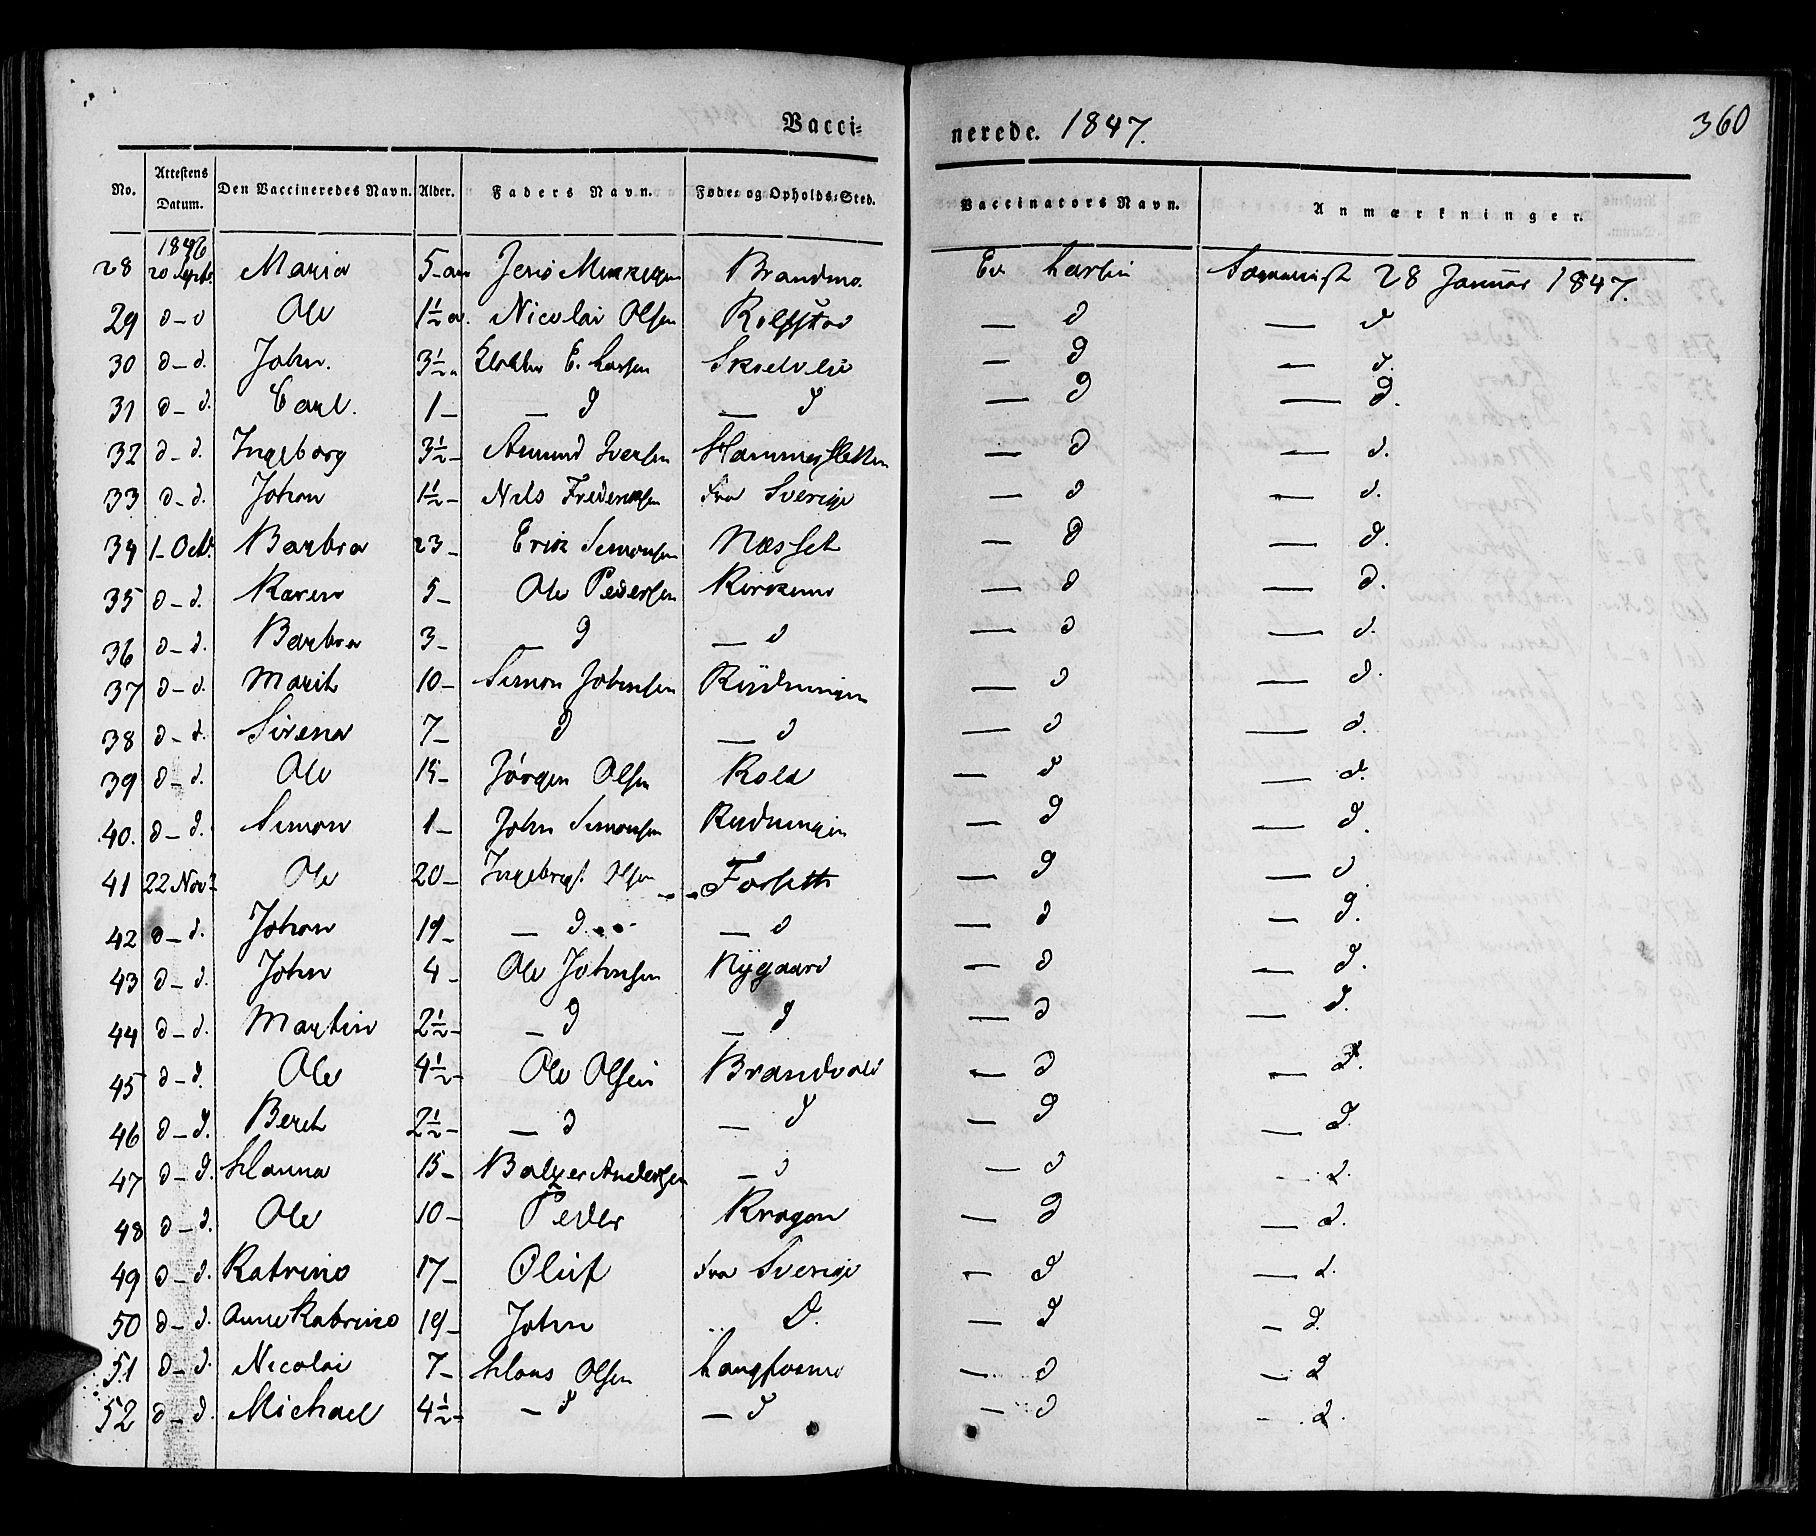 Vacci= nerede. 1847. 360
No. Attestens Datum. Den Vaccineredes Navn. Alder. Faders Navn. Føde= og Opholds=Sted. Vaccinators Navn. Anmærkninger.
1846
28 20 Septb. Maria 5 Brandmo. Larsen 28 Januar 1847.
29 d – d Ole 1½ a. Nicolai Olsen Rolfstad — d — d
30 d – d. John. 3½ E. Larsen — d — d.
31 d – d. Carl. 1 – — d — d — d — d.
32 d – d. Ingeborg 3½ – Amund Iversen — d — d.
33 d – d. Johan 1½ – Nils Frederiksen fra Sverige — d — d.
34 1 – Octb. Barbra 23 – Erik Simonsen Næsset — d — d.
35 d – d. Karen 5 – Ole Pedersen Kirkemo — d — d.
36 d – d. Barbra 3 – — d — d — d — d.
37 d – d. Marit 10 – Simon Johnsen Rüdningen — d — d.
38 d – d. Sirena 7 – d — d — d — d.
39 d – d. Ole 15 – Jørgen Olsen Kold — d — d.
40. d – d. Simon 1 – John Simonsen Rudningen — d — d.
41 22 Novb. Ole 20 – Ingebrigt Olsen Forseth — d — d
42 d – d. Johan 19 – — d — d — d — d.
43 d – d. John 4 – Ole Johnsen Nÿgaard — d — d.
44 d – d. Martin 2½ – — d — d — d — d.
45 d – d. Ole 4½ – Ole Olsen Brandvold — d — d.
46 d – d. Beret 2½ – — d — d — d — d.
47 d – d. Hanna 15 – Balzer Andersen — d — d — d.
48 d – d. Ole 10 – Peder Krogen — d — d.
49 d – d. Katrine 17 – Oluf fra Sverige — d — d.
50 d – d. Anne Katrine 19 – John d. — d — d.
51 d – d. Nicolai 7 – Hans Olsen — d — d
52 d – d. Michael 4½ – — d — d — d — d.